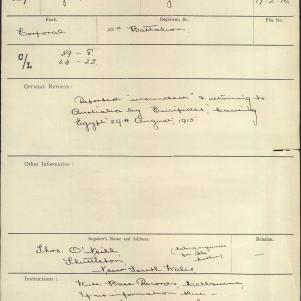 Rank.
Regiment, &c.
File No.
Corporal
10th Battalion
C/L
59 - 8.
24 - 22
OFFICIAL REPORTS:
Reported "wounded" & returning to
Australia by "Euripides" leaving
Egypt 29th August, 1915.
Other Information:
Inquirer's Name and Address.
Relation.
Thos. O'Neill
Shuttleton
New South Wales
(being inquiries for his brother)
Instructions:
Write Base Records, Melbourne,
If no information there -